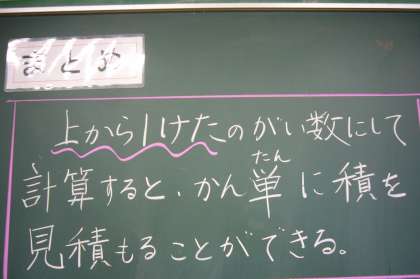 まとめ
上から1けたのがい数にして
計算すると、かん単に積を
たん
見積もることができる。